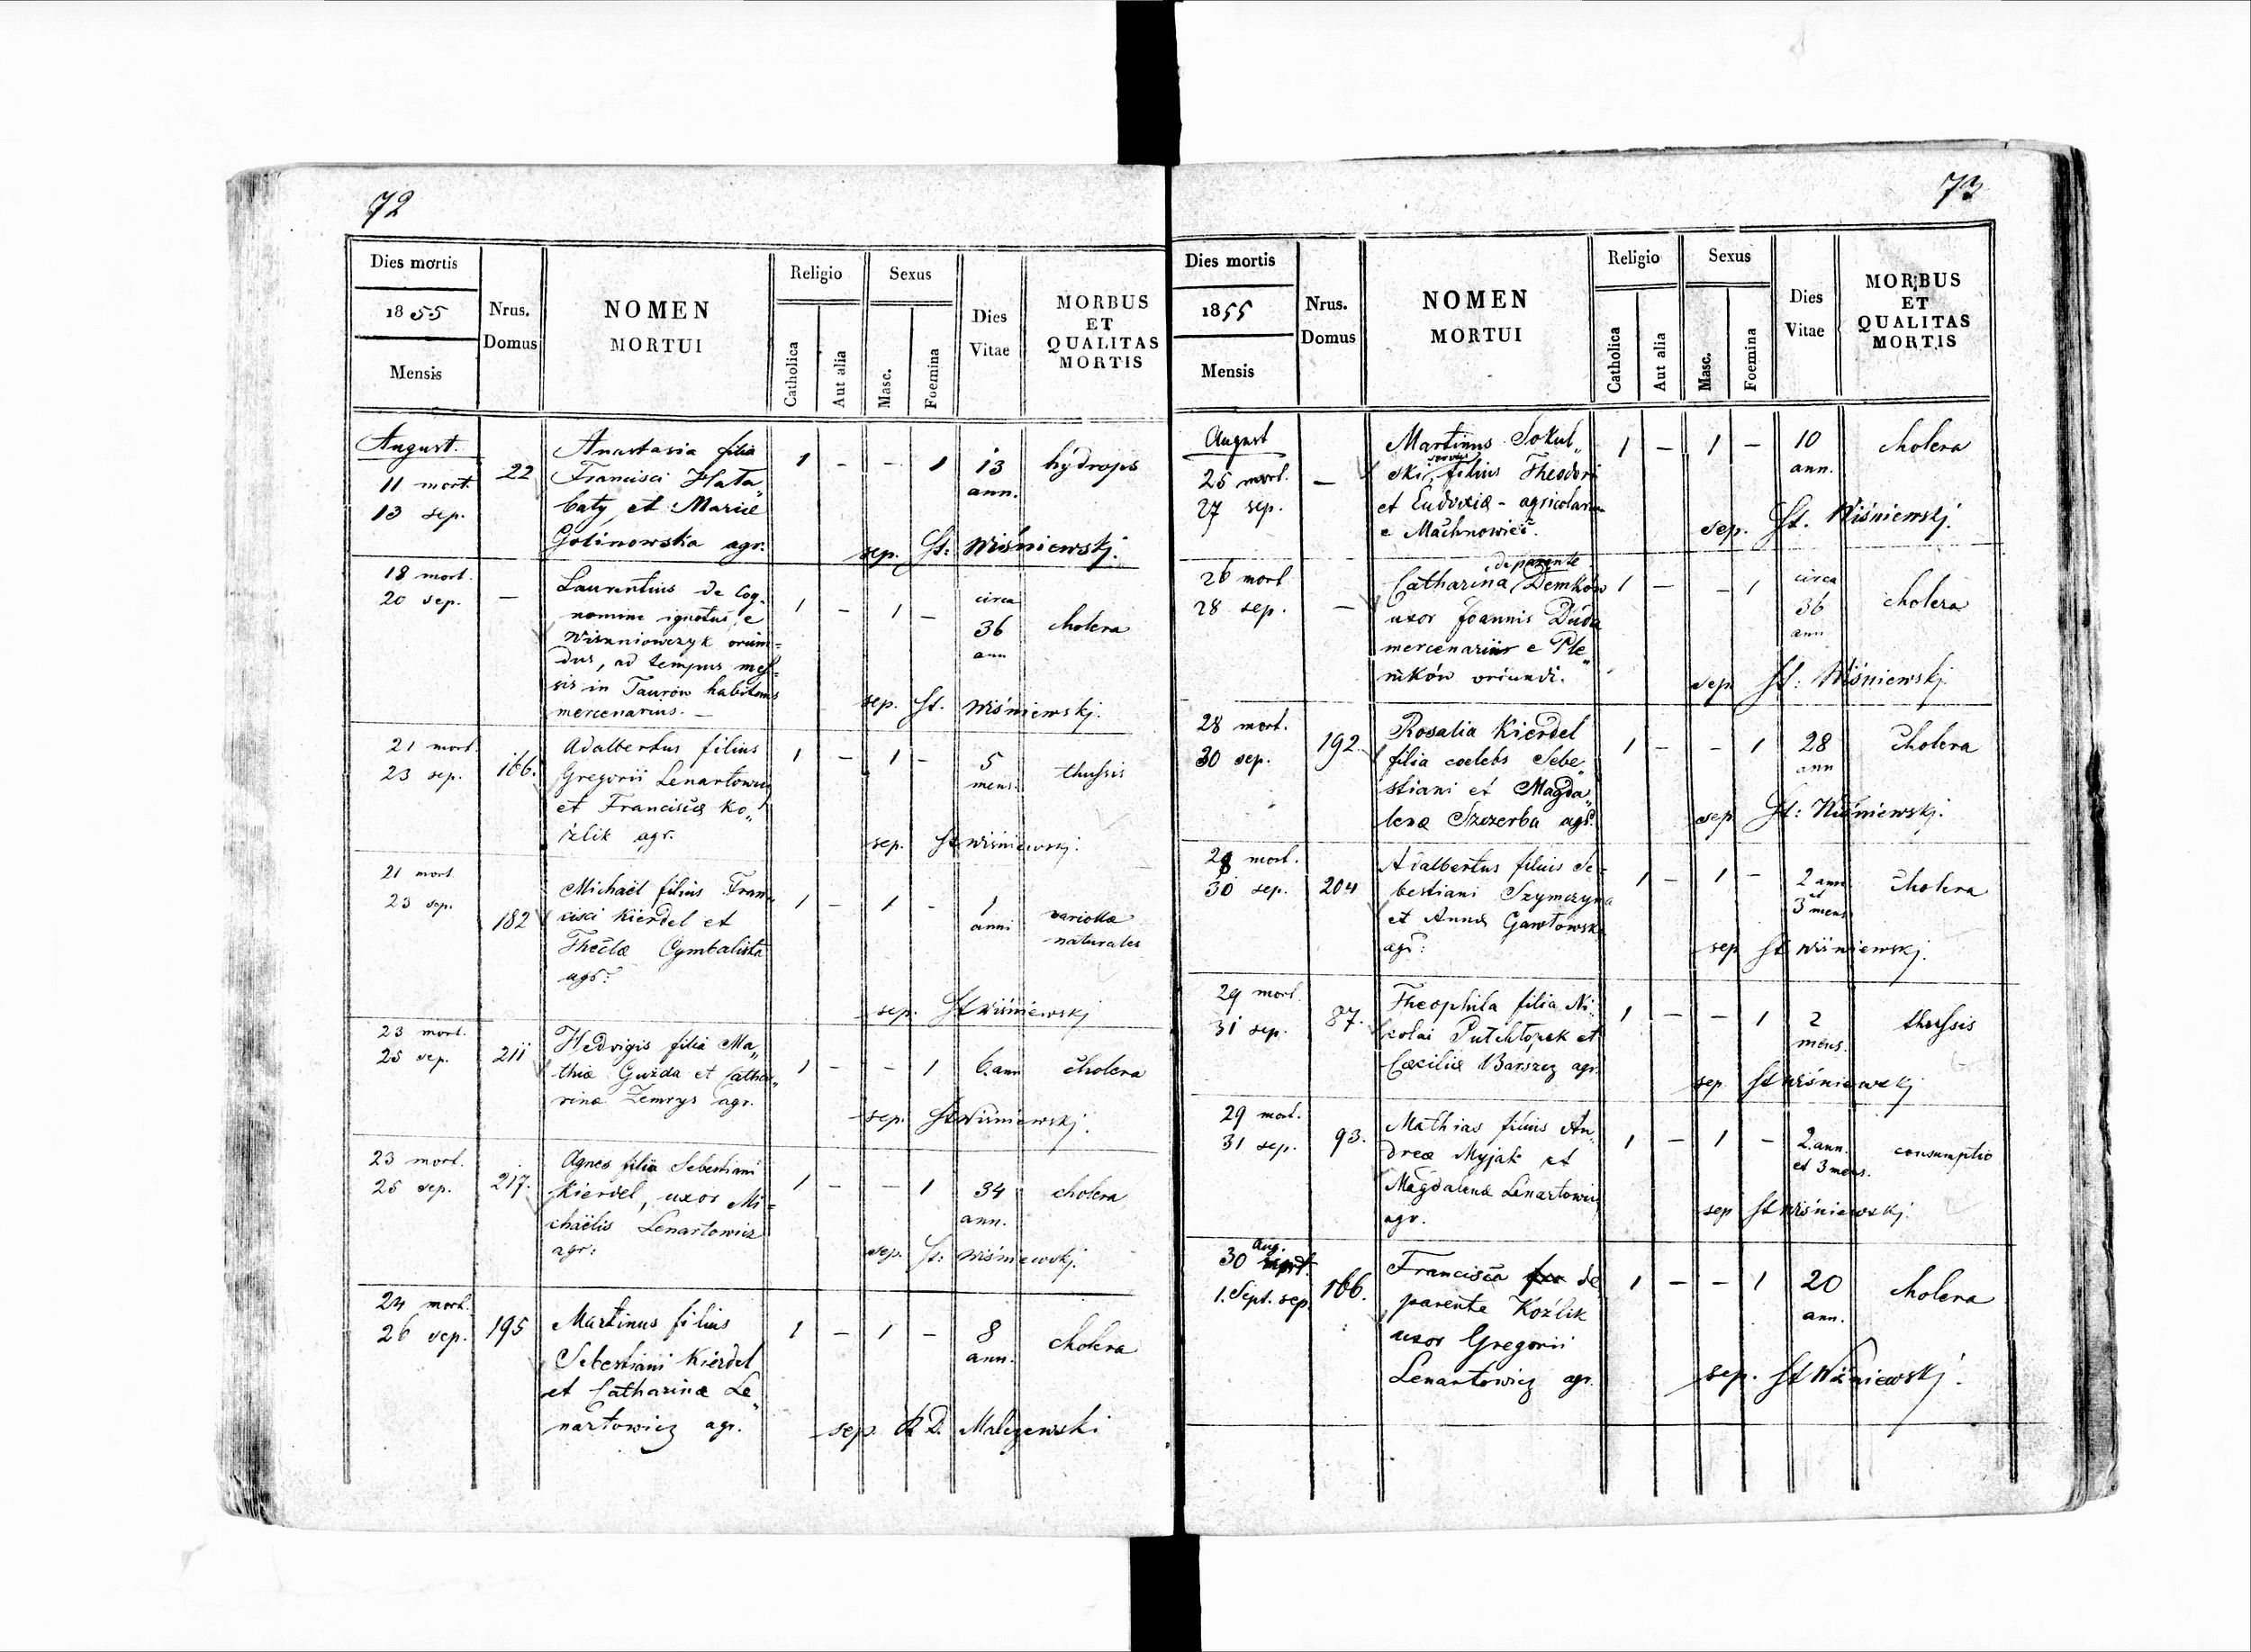 72
Dies mortis
1855
Mensis
Nrus.
Domus
NOMEN
MORTUI
Religio
Catholica
Aut alia
Sexus
Masc.
Foemina
Dies
Vitae
MORBUS
ET
QUALITAS
MORTIS
August.
11 mort.
13 sep.
22
Anastasia filia
Francisci Hała„
baty et Mariæ
Golinowska agr.
1 - - 1
13
ann.
hydrops
sep. St: Wiśniewskj.
18 mort.
20 sep.
-
Laurentius de Cog-
nomine ignotus, e
Wisnniowczyk oriun=
dus, ad tempus mes=
sis in Taurów habitans
mercenarius. -
1 - 1 -
circa
36
ann
cholera
sep. St. Wiśniewskj.
21 mort.
23 sep.
166.
Adalbertus filius
Gregorii Lenartowicz
et Franciscæ Ko„
źlik agr.
1 - 1 -
5
mens.
thussis
sep. St Wiśniewskj.
21 mort
23 sep.
182
Michaël filius Fran„
cisci Kierdel et
Theclæ Cymbalista
agr.
1 - 1 -
1
anni
variolæ
naturales
sep. St Wiśniewskj
23 mort.
25 sep.
211
Hedvigis filia Ma„
thiæ Guzda et Catha„
rinæ Zemrys agr.
1 - - 1
6. ann
cholera
sep. St Wiśniewskj.
23 mort.
25 sep.
217.
Agnes filia Sebestiani
Kierdel, uxor Mi=
chaëlis Lenartowicz
agr:
1 - - 1
34
ann.
cholera
sep. St: Wiśniewskj.
24 mort.
26 sep.
195
Martinus filius
Sebestiani Kierdel
et Catharinæ Le„
nartowicz agr.
1 - 1 -
8
ann.
cholera
sep. R D. Malczewski
73
Dies mortis
1855
Mensis
Nrus.
Domus
NOMEN
MORTUI
Religio
Catholica
Aut alia
Sexus
Masc.
Foemina
Dies
Vitae
MORBUS
ET
QUALITAS
MORTIS
August
25 mort.
27 sep.
-
Martinus Sokul„
servus
ski, filius Theodori
et Eudoxiæ - agricolarum
e Machnowiec.
1 - 1 -
10
ann.
cholera
sep. St. Wiśniewskj.
26 mort
28 sep.
-
de parente
Catharina Demków
uxor Joannis Duda
mercenarius e Ple„
ników oriundi.
1 - - 1
circa
36
ann
cholera
sep St: Wiśniewskj
28 mort.
30 sep.
192.
Rosalia Kierdel
filia coelebs Sebe„
stiani et Magda„
lenæ Szczerba agr.
1 - - 1
28
ann
cholera
sep St: Wiśniewskj.
28 mort.
30 sep.
204
Adalbertus filius Se-
bestiani Szymczyna
et Annæ Gawłowska
agr:
1 - 1 -
2 ann
et
3 mens
cholera
sep St Wiśniewskj.
29 mort.
31 sep.
87.
Theophila filia Ni-
colai Putchłopek et
Cæciliæ Barszcz agr.
1 - - 1
2
mens.
thussis
sep St Wiśniewskj
29 mort.
31 sep.
93.
Mathias filius An„
dreæ Myjak et
Magdalenæ Lenartowicz
agr.
1 - 1 -
2. ann.
et 3 mens.
consumptio
sep St Wiśniewskj.
Aug.
30
1. Sept. sep.
166.
Francisca de
parente Koźlik
uxor Gregorii
Lenartowicz agr.
1 - - 1
20
ann.
cholera
sep. St Wiśniewskj.